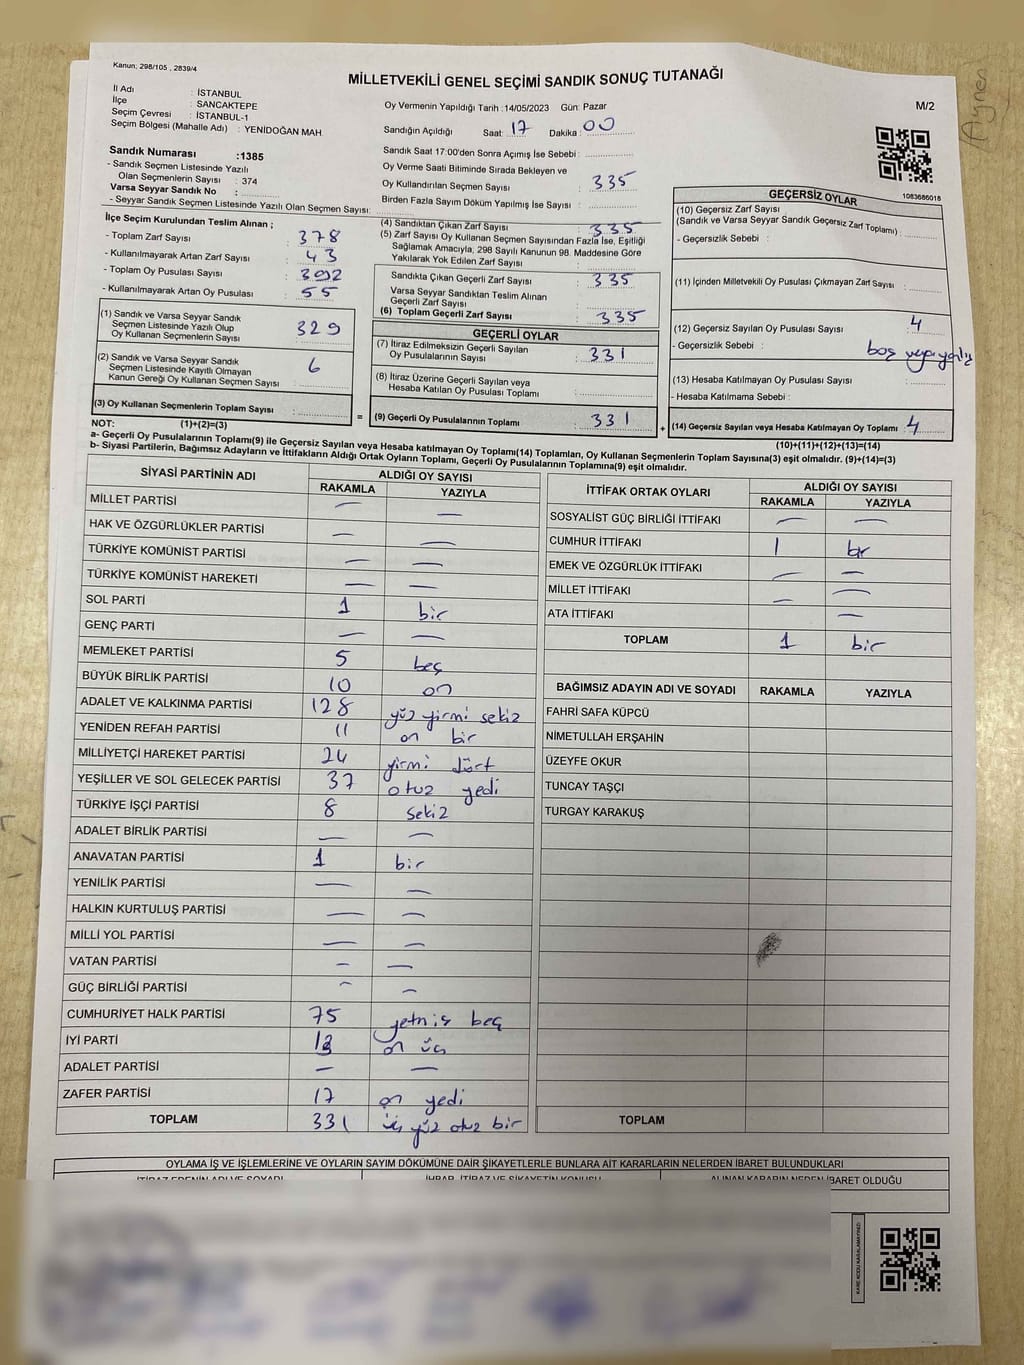 Kanun; 298/105 , 2839/4
MİLLETVEKİLİ GENEL SEÇİMİ SANDIK SONUÇ TUTANAĞI
Aynen
M/2
İl Adı : İSTANBUL
İlçe : SANCAKTEPE
Seçim Çevresi : İSTANBUL-1
Seçim Bölgesi (Mahalle Adı) : YENİDOĞAN MAH.
Oy Vermenin Yapıldığı Tarih :14/05/2023 Gün: Pazar
Sandığın Açıldığı Saat: 17 Dakika : 00
Sandık Saat 17:00'den Sonra Açımış İse Sebebi :
Oy Verme Saati Bitiminde Sırada Bekleyen ve
Oy Kullandırılan Seçmen Sayısı : 335
Birden Fazla Sayım Döküm Yapılmış İse Sayısı :
Sandık Numarası :1385
- Sandık Seçmen Listesinde Yazılı
Olan Seçmenlerin Sayısı : 374
Varsa Seyyar Sandık No :
- Seyyar Sandık Seçmen Listesinde Yazılı Olan Seçmen Sayısı:
İlçe Seçim Kurulundan Teslim Alınan ;
- Toplam Zarf Sayısı : 378
- Kullanılmayarak Artan Zarf Sayısı : 43
- Toplam Oy Pusulası Sayısı : 392
- Kullanılmayarak Artan Oy Pusulası : 55
(1) Sandık ve Varsa Seyyar Sandık
Seçmen Listesinde Yazılı Olup
Oy Kullanan Seçmenlerin Sayısı : 329
(2) Sandık ve Varsa Seyyar Sandık
Seçmen Listesinde Kayıtlı Olmayan
Kanun Gereği Oy Kullanan Seçmen Sayısı : 6
(3) Oy Kullanan Seçmenlerin Toplam Sayısı :
(4) Sandıktan Çıkan Zarf Sayısı : 335
(5) Zarf Sayısı Oy Kullanan Seçmen Sayısından Fazla İse, Eşitliği
Sağlamak Amacıyla, 298 Sayılı Kanunun 98. Maddesine Göre
Yakılarak Yok Edilen Zarf Sayısı :
Sandıkta Çıkan Geçerli Zarf Sayısı : 335
Varsa Seyyar Sandıktan Teslim Alınan
Geçerli Zarf Sayısı :
(6) Toplam Geçerli Zarf Sayısı : 335
GEÇERLİ OYLAR
(7) İtiraz Edilmeksizin Geçerli Sayılan
Oy Pusulalarının Sayısı : 331
(8) İtiraz Üzerine Geçerli Sayılan veya
Hesaba Katılan Oy Pusulası Toplamı :
= (9) Geçerli Oy Pusulalarının Toplamı : 331 +
1083686018
GEÇERSİZ OYLAR
(10) Geçersiz Zarf Sayısı
(Sandık ve Varsa Seyyar Sandık Geçersiz Zarf Toplamı) :
- Geçersizlik Sebebi :
(11) İçinden Milletvekili Oy Pusulası Çıkmayan Zarf Sayısı :
(12) Geçersiz Sayılan Oy Pusulası Sayısı : 4
- Geçersizlik Sebebi : boş
(13) Hesaba Katılmayan Oy Pusulası Sayısı :
- Hesaba Katılmama Sebebi :
(14) Geçersiz Sayılan veya Hesaba Katılmayan Oy Toplamı : 4
NOT: (1)+(2)=(3)
(10)+(11)+(12)+(13)=(14)
a- Geçerli Oy Pusulalarının Toplamı(9) ile Geçersiz Sayılan veya Hesaba katılmayan Oy Toplamı(14) Toplamları, Oy Kullanan Seçmenlerin Toplam Sayısına(3) eşit olmalıdır. (9)+(14)=(3)
b- Siyasi Partilerin, Bağımsız Adayların ve İttifakların Aldığı Ortak Oyların Toplamı, Geçerli Oy Pusulalarının Toplamına(9) eşit olmalıdır.
SİYASİ PARTİNİN ADI ALDIĞI OY SAYISI
RAKAMLA YAZIYLA
MİLLET PARTİSİ — —
HAK VE ÖZGÜRLÜKLER PARTİSİ — —
TÜRKİYE KOMÜNİST PARTİSİ — —
TÜRKİYE KOMÜNİST HAREKETİ — —
SOL PARTİ 1 bir
GENÇ PARTİ — —
MEMLEKET PARTİSİ 5 beş
BÜYÜK BİRLİK PARTİSİ 10 on
ADALET VE KALKINMA PARTİSİ 128 yüz yirmi sekiz
YENİDEN REFAH PARTİSİ 11 on bir
MİLLİYETÇİ HAREKET PARTİSİ 24 yirmi dört
YEŞİLLER VE SOL GELECEK PARTİSİ 37 otuz yedi
TÜRKİYE İŞÇİ PARTİSİ 8 sekiz
ADALET BİRLİK PARTİSİ — —
ANAVATAN PARTİSİ 1 bir
YENİLİK PARTİSİ — —
HALKIN KURTULUŞ PARTİSİ — —
MİLLİ YOL PARTİSİ — —
VATAN PARTİSİ — —
GÜÇ BİRLİĞİ PARTİSİ — —
CUMHURİYET HALK PARTİSİ 75 yetmiş beş
İYİ PARTİ 13 on üç
ADALET PARTİSİ — —
ZAFER PARTİSİ 17 on yedi
TOPLAM 331 üç yüz otuz bir
İTTİFAK ORTAK OYLARI ALDIĞI OY SAYISI
RAKAMLA YAZIYLA
SOSYALİST GÜÇ BİRLİĞİ İTTİFAKI — —
CUMHUR İTTİFAKI 1 bir
EMEK VE ÖZGÜRLÜK İTTİFAKI — —
MİLLET İTTİFAKI — —
ATA İTTİFAKI —
TOPLAM 1 bir
BAĞIMSIZ ADAYIN ADI VE SOYADI RAKAMLA YAZIYLA
FAHRİ SAFA KÜPCÜ
NİMETULLAH ERŞAHİN
ÜZEYFE OKUR
TUNCAY TAŞÇI
TURGAY KARAKUŞ
TOPLAM
OYLAMA İŞ VE İŞLEMLERİNE VE OYLARIN SAYIM DÖKÜMÜNE DAİR ŞİKAYETLERLE BUNLARA AİT KARARLARIN NELERDEN İBARET BULUNDUKLARI
İTİRAZ EDENİN ADI VE SOYADI İHBAR, İTİRAZ VE ŞİKAYETİN KONUSU ALINAN KARARIN NEDEN İBARET OLDUĞU